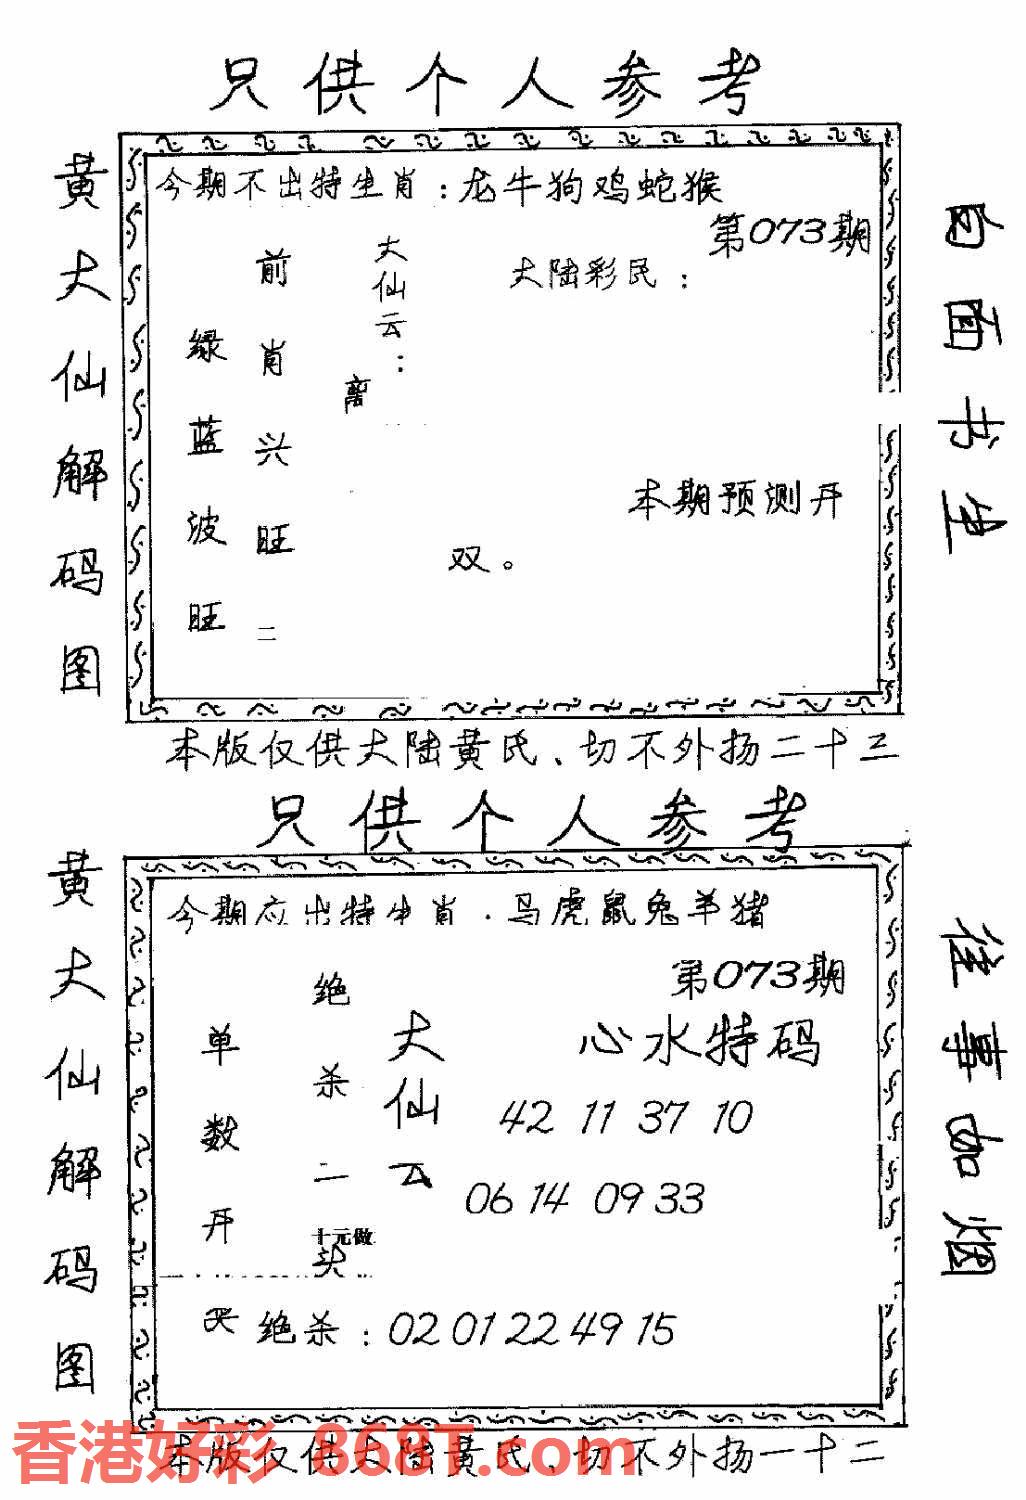 只供个人参考
黄大仙解码图
今期不出特生肖：龙牛狗鸡蛇猴
第073期
大陆彩民：
大仙云：
离
前肖兴旺二
绿蓝波旺
本期预测开
双。
白面书生
本版仅供大陆黄氏、切不外扬二十三
只供个人参考
黄大仙解码图
今期应出特生肖．马虎鼠兔羊猪
第073期
心水特码
42 11 37 10
06 14 09 33
大仙云
绝杀二头
十元做
单数开
绝杀：02 01 22 49 15
往事如烟
本版仅供大陆黄氏、切不外扬一十二
香港好彩 868T.com